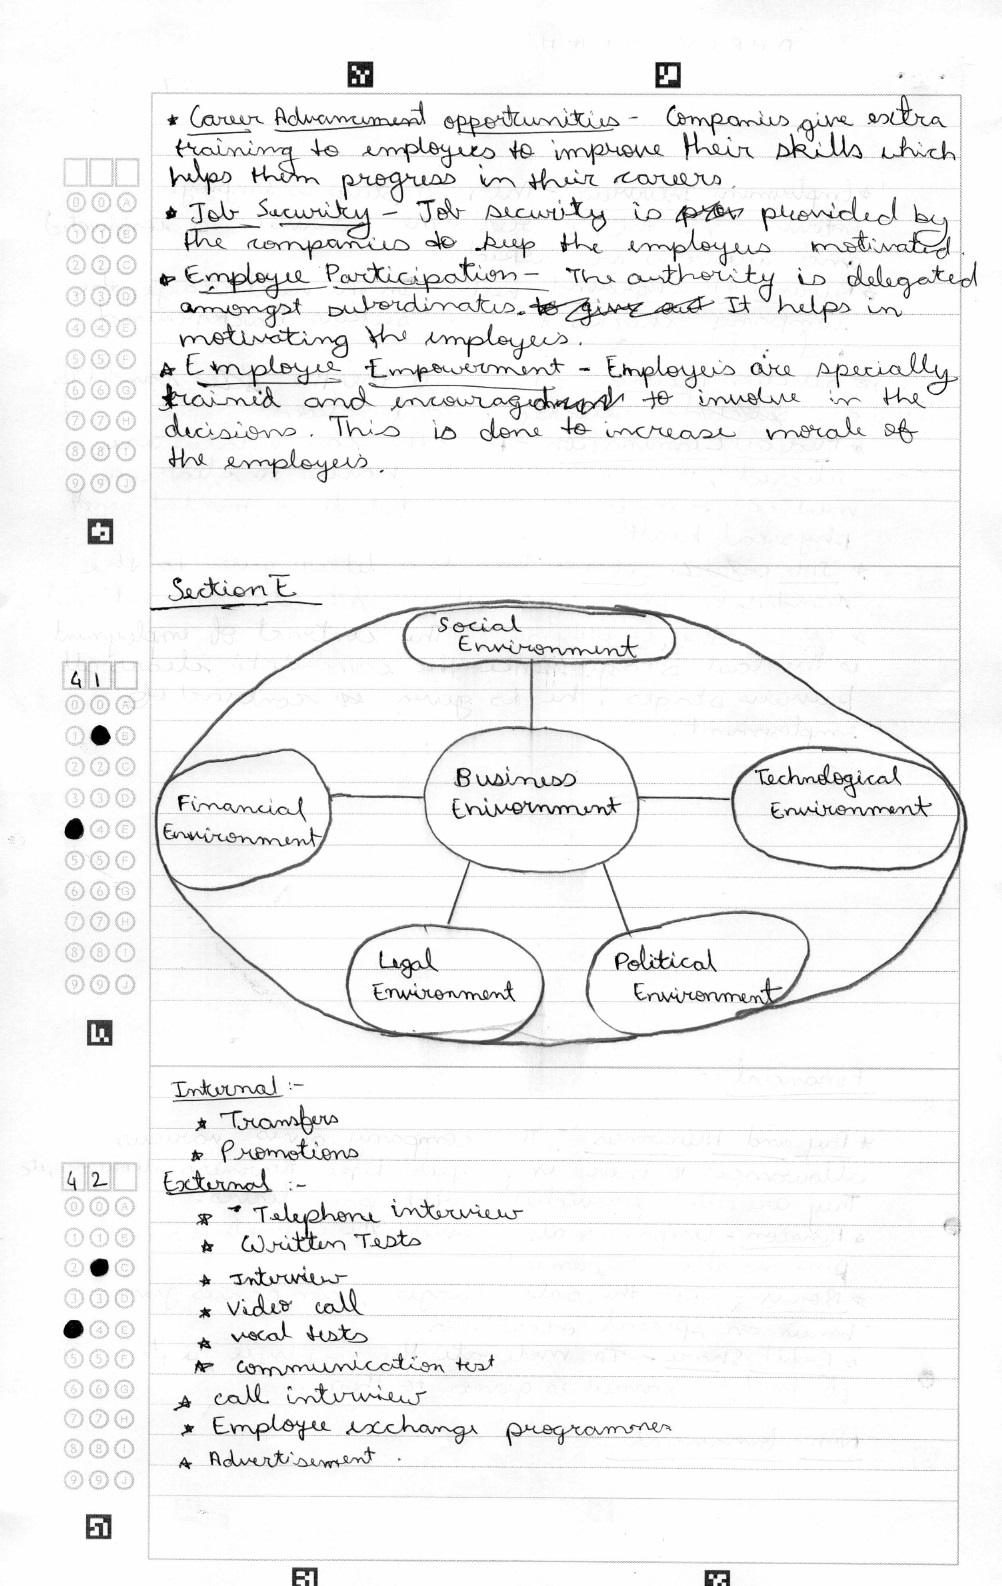 * Career Advancement opportunities - Companies give extra
training to employees to improve their skills which
helps them progress in their careers.
* Job Security - Job security is provided by
the companies to keep the employees motivated.
* Employee Participation - The authority is delegated
amongst subordinates. to give out It helps in
motivating the employees.
* Employee Empowerment - Employees are specially
trained and encouraged to involve in the
decisions. This is done to increase morale of
the employees.
Section E
41
Social
Environment
Business
Enivornment
Technological
Environment
Financial
Environment
Legal
Environment
Political
Environment
Internal :-
* Transfers
* Promotions
42
External :-
* Telephone interview
* Written Tests
* Interview
* Video call
* vocal tests
* communication test
* call interview
* Employee exchange programmes
* Advertisement.